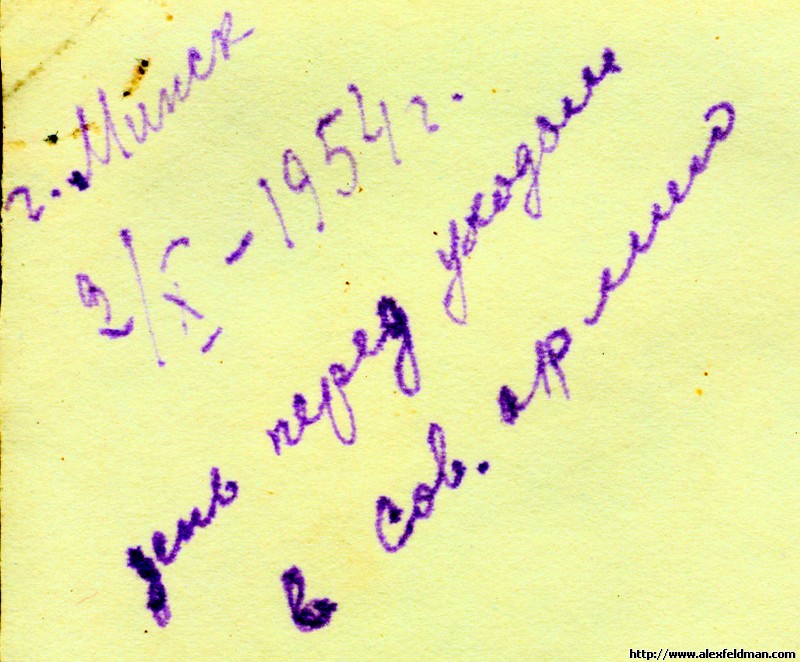 г. Минск
2/X - 1954 г.
день перед уходом
в Сов. армию
http://www.alexfeldman.com